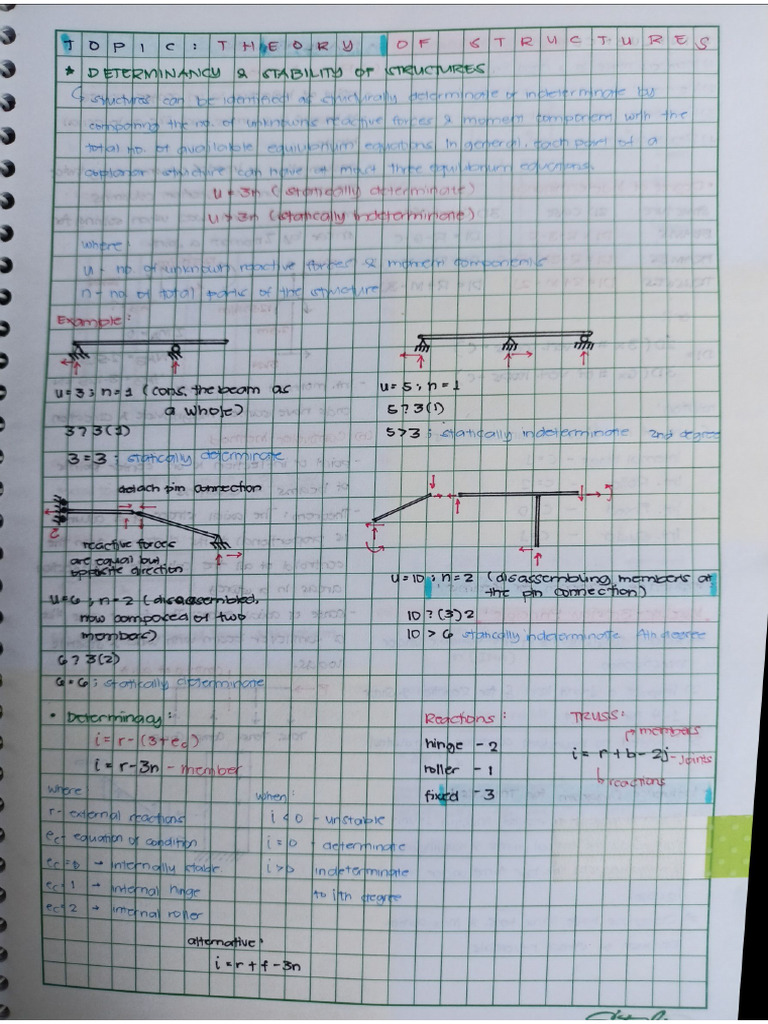 TOPIC: THEORY OF STRUCTURES
* DETERMINANCY & STABILITY OF STRUCTURES
↳ structures can be identified as structurally determinate or indeterminate by
comparing the no. of unknowns reactive forces & moment component with the
total no. of available equilibrium equations. In general, each part of a
coplanar structure can have at most three equilibrium equations.
u = 3n (statically determinate)
u > 3n (statically indeterminate)
where:
u - no. of unknown reactive forces & moment components
n - no. of total parts of the structure
Example:
u = 3 ; n = 1 (cons. the beam as
a whole)
3 ? 3(1)
3 = 3 ; statically determinate
u = 5 ; n = 1
5 ? 3(1)
5 > 3 ; statically indeterminate 2nd degree
detach pin connection
reactive forces
are equal but
opposite direction
u = 6 ; n = 2 (disassembled,
now composed of two
members)
6 ? 3(2)
6 = 6 ; statically determinate
u = 10 ; n = 2 (disassembling members at
the pin connection)
10 ? (3)2
10 > 6 statically indeterminate 4th degree
• Determinacy:
i = r - (3 + ec)
i = r - 3n - member
where
r - external reactions
ec - equation of condition
ec = 0 → internally stable
ec = 1 → internal hinge
ec = 2 → internal roller
when:
i < 0 - unstable
i = 0 - determinate
i > 0 indeterminate
to ith degree
alternative:
i = r + f - 3n
Reactions:
hinge - 2
roller - 1
fixed - 3
TRUSS:
members
i = r + b - 2j - joints
reactions